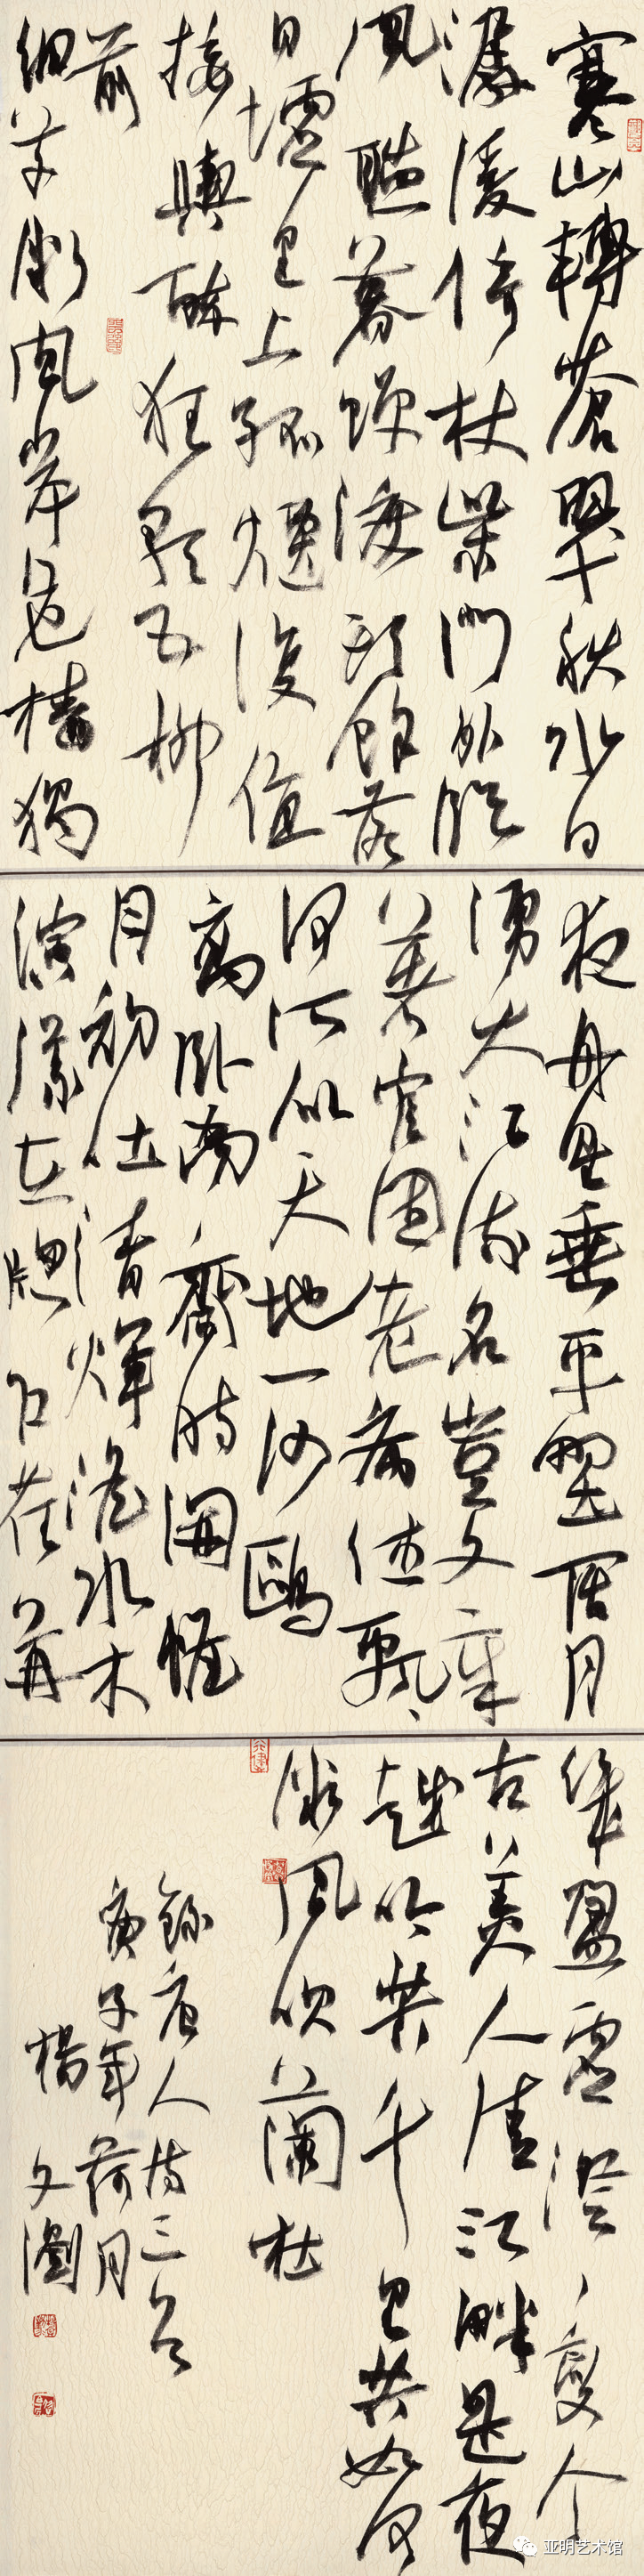 寒山轉蒼翠秋水日
潺湲倚杖柴門外臨
風聽暮蟬渡頭餘落
日墟里上孤煙復值
接輿醉狂歌五柳
前
細草微風岸危檣獨
夜舟星垂平野闊月
湧大江流名豈文章
著官因老病休飄飄
何所似天地一沙鷗
高臥南齋時開帷
月初吐清輝澹水木
演漾在窗戶荏苒
幾盈虛澄澄變今
古美人清江畔是夜
越吟苦千里共如何
微風吹蘭杜
錄唐人詩三首
庚子年荷月
楊文
亚明艺术馆